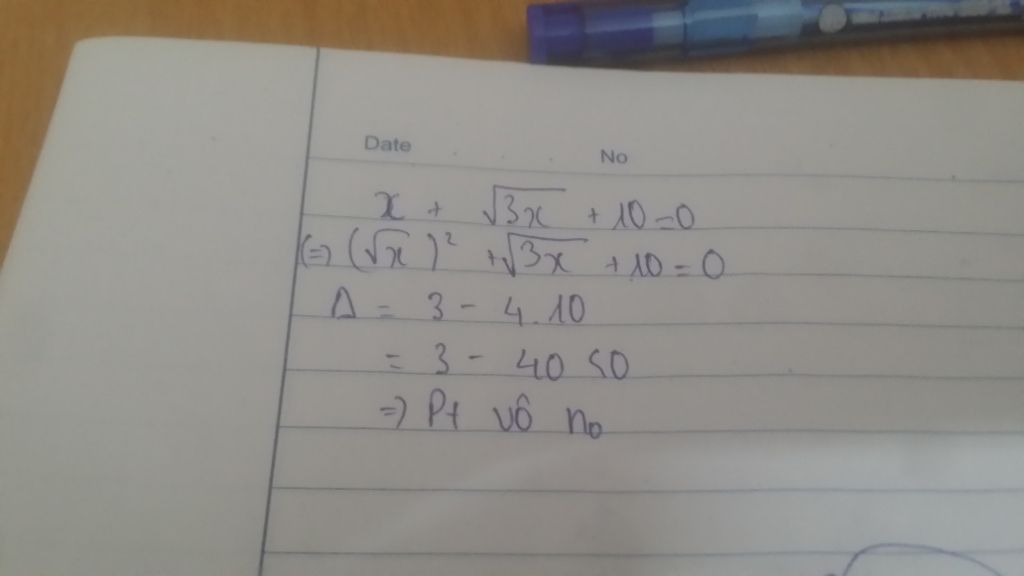 Date No
x + √3x + 10 = 0
(=) (√x)² + √3x + 10 = 0
Δ = 3 - 4.10
= 3 - 40 <0
=) Pt vô no